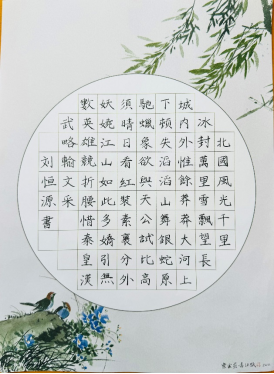 北國風光千里
冰封萬里雪飄望長
城內外惟餘莽莽大河上
下頓失滔滔山舞銀蛇原
馳蠟象欲與天公試比高
須晴日看紅裝素裹分外
妖嬈江山如此多嬌引無
數英雄競折腰惜秦皇漢
武略輸文采
刘恒源書